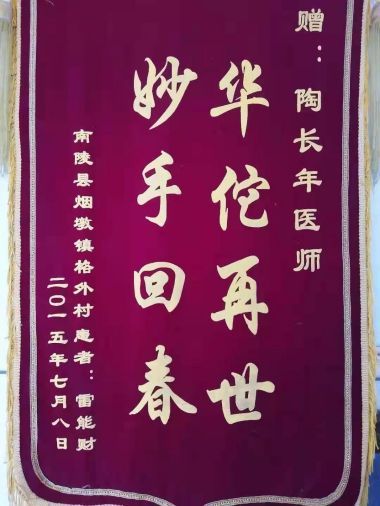 赠：陶长年医师
华佗再世
妙手回春
南陵县烟墩镇格外村患者：雷能财
二〇一五年七月八日